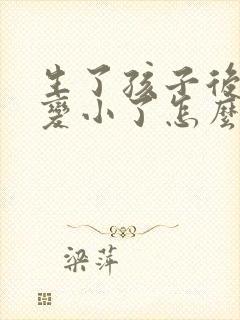 生了孩子後
變小了怎麼
梁萍